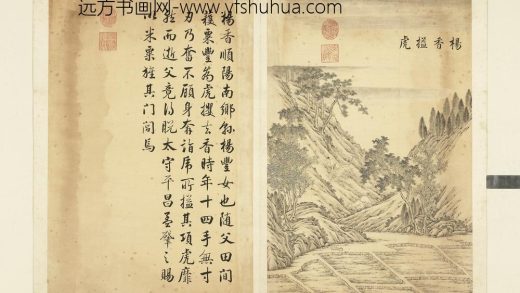 远方书画网-www.yfshuhua.com
楊香搤虎
楊香順陽南鄉縣楊豐女也随父田間
穫粟豐為虎搜去香時年十四手無寸
刃乃奮不顧身奔詣虎所搤其項虎靡
然而逝父竟得脫太守平昌孟肇之賜
以米粟旌其門閭焉